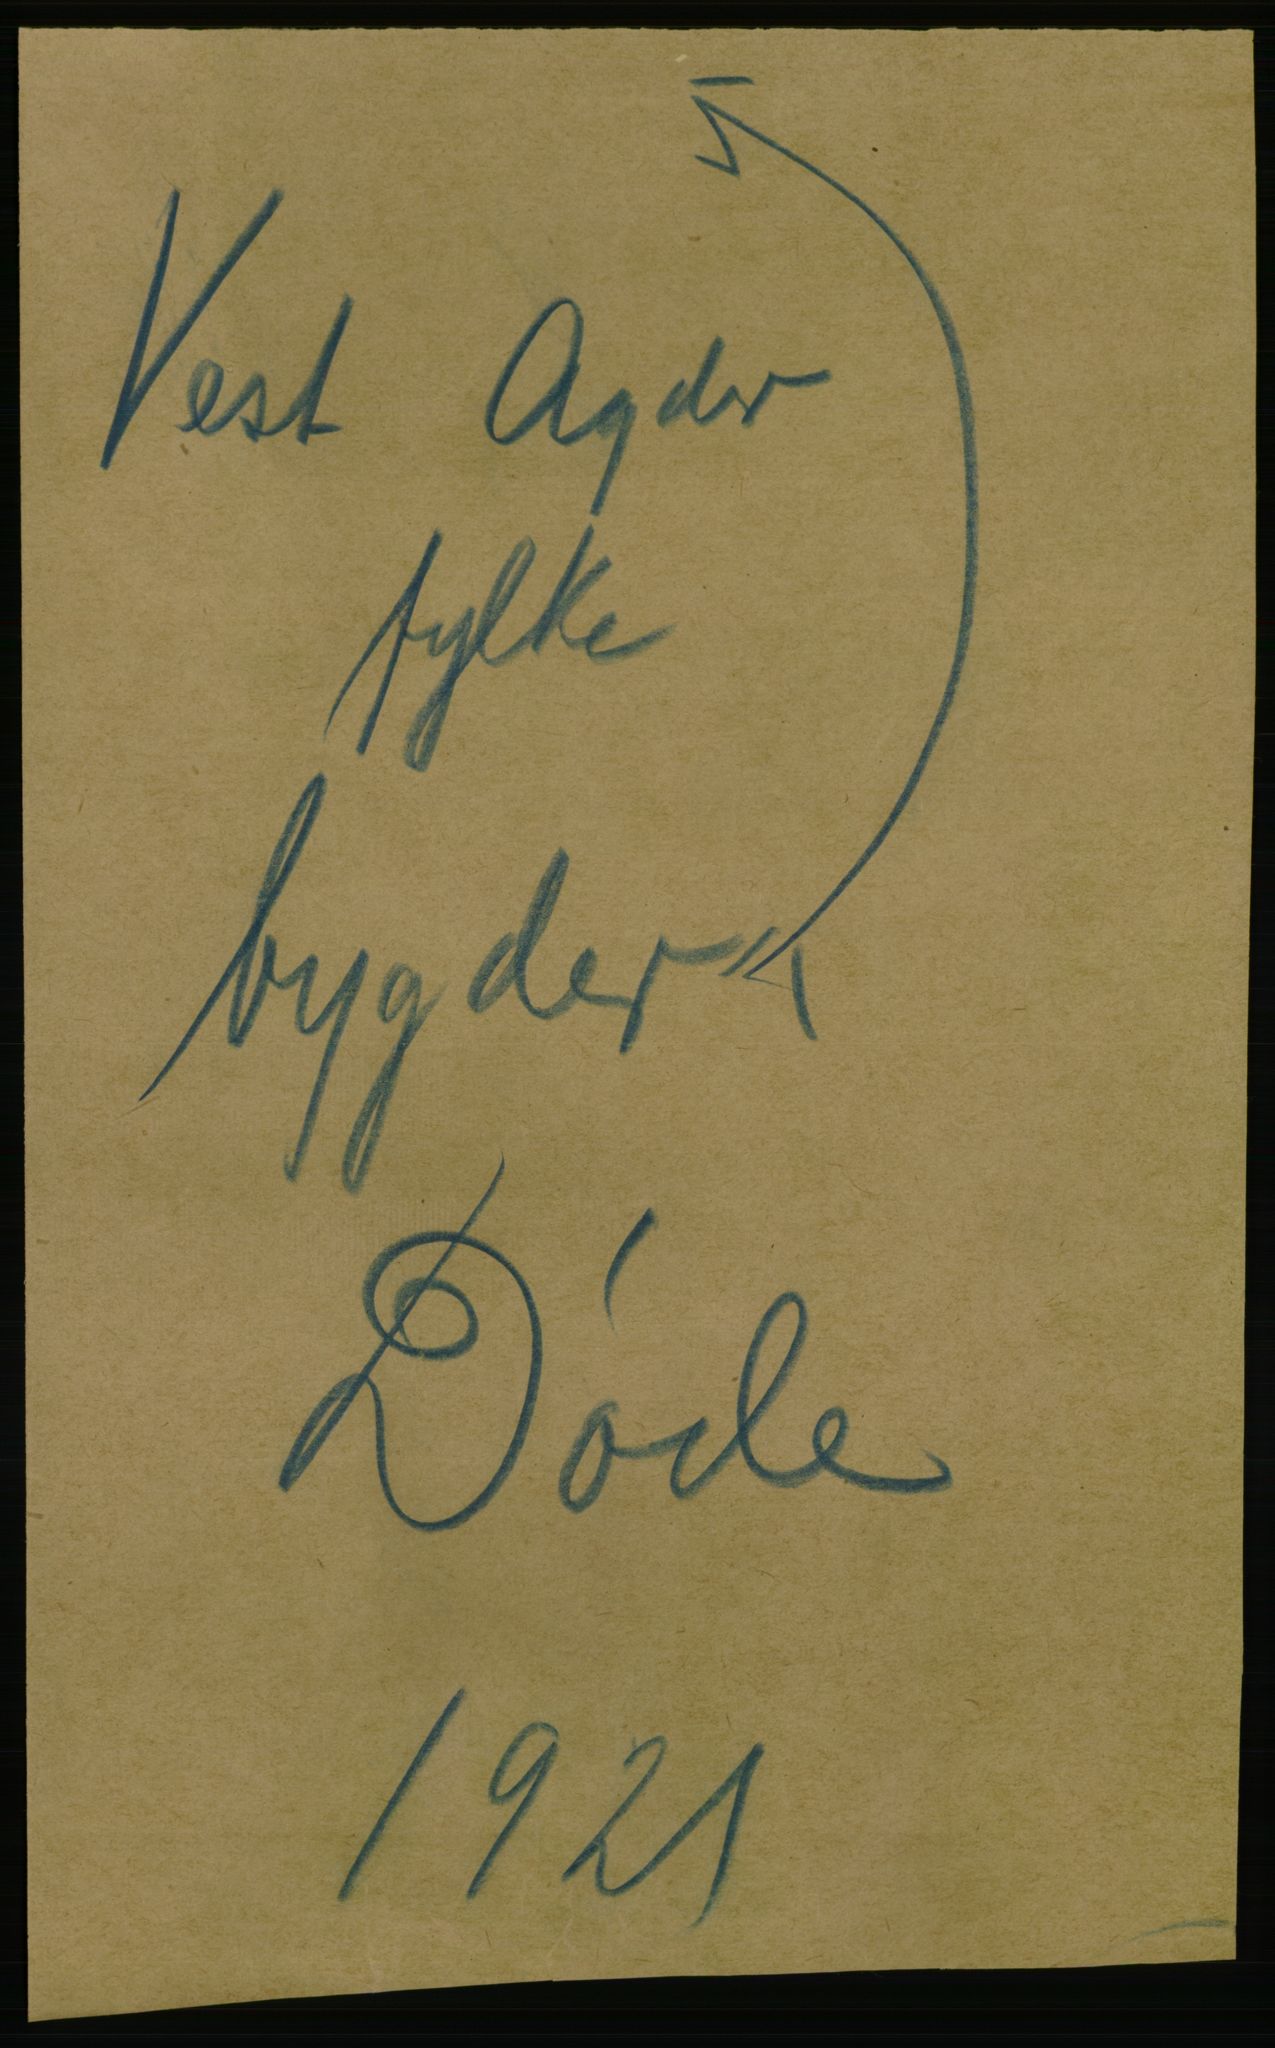 Vest Agder
fylke
bygder
Døde
1921